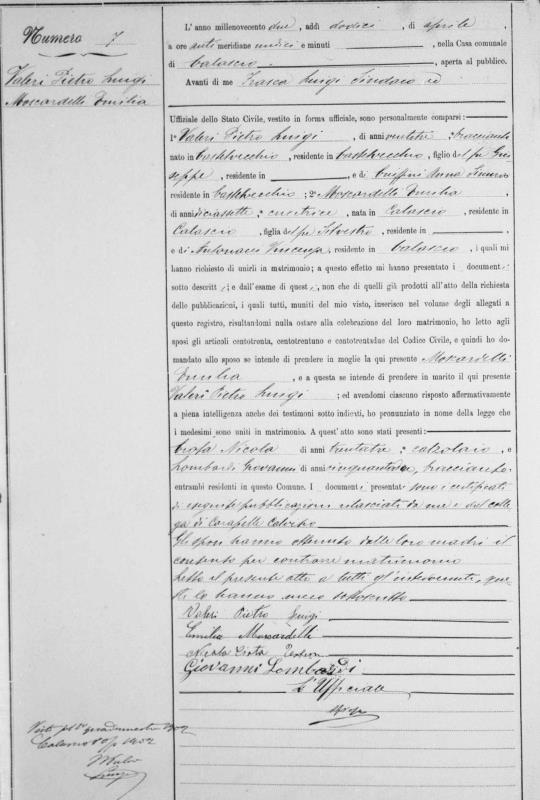 Numero 7
Valeri Pietro Luigi
Moscardelli Emilia
L' anno millenovecento due, addi dodici, di aprile,
a ore anti meridiane undici e minuti, nella Casa comunale
di Calascio, aperta al pubblico.
Avanti di me Frasca Luigi Sindaco ed
Uffiziale dello Stato Civile, vestito in forma uffiziale, sono personalmente comparsi:
1º Valeri Pietro Luigi, di anni ventitre, bracciante
nato in Castelvecchio, residente in Castelvecchio, figlio del fu Giu
seppe, residente in, e di Anna
residente in Castelvecchio; 2º Moscardelli Emilia,
di anni diciassette, cucitrice, nata in Calascio, residente in
Calascio, figlia del fu Silvestro, residente in,
e di Antonacci Vincenza, residente in Calascio, i quali mi
hanno richiesto di unirli in matrimonio; a questo effetto mi hanno presentato i documenti
sotto descritti; e dall'esame di questi, non che di quelli già prodotti all'atto della richiesta
delle pubblicazioni, i quali tutti, muniti del mio visto, inserisco nel volume degli allegati a
questo registro, risultandomi nulla ostare alla celebrazione del loro matrimonio, ho letto agli
sposi gli articoli centotrenta, centotrentuno e centotrentadue del Codice Civile, e quindi ho do-
mandato allo sposo se intende di prendere in moglie la qui presente Moscardelli
Emilia, e a questa se intende di prendere in marito il qui presente
Valeri Pietro Luigi; ed avendomi ciascuno risposto affermativamente
a piena intelligenza anche dei testimoni sotto indicati, ho pronunziato in nome della legge che
i medesimi sono uniti in matrimonio. A quest' atto sono stati presenti:
Nicola di anni trentatre, calzolaio, e
Lombardi Giovanni di anni cinquantadue, bracciante
entrambi residenti in questo Comune. I documenti presentati sono i certificati
di eseguite pubblicazioni rilasciati da me e dal colle
ga di Carapelle Calvisio
Gli sposi hanno ottenuto dalle loro madri il
consenso per contrarre matrimonio
Letto il presente atto a tutti gl'intervenuti, que
sti lo hanno meco sottoscritto
Valeri Pietro Luigi
Emilia Moscardelli
Nicola
Giovanni Lombardi
L'Uffiziale
Visto pel 1º quadrimestre 1902
Calascio 1902